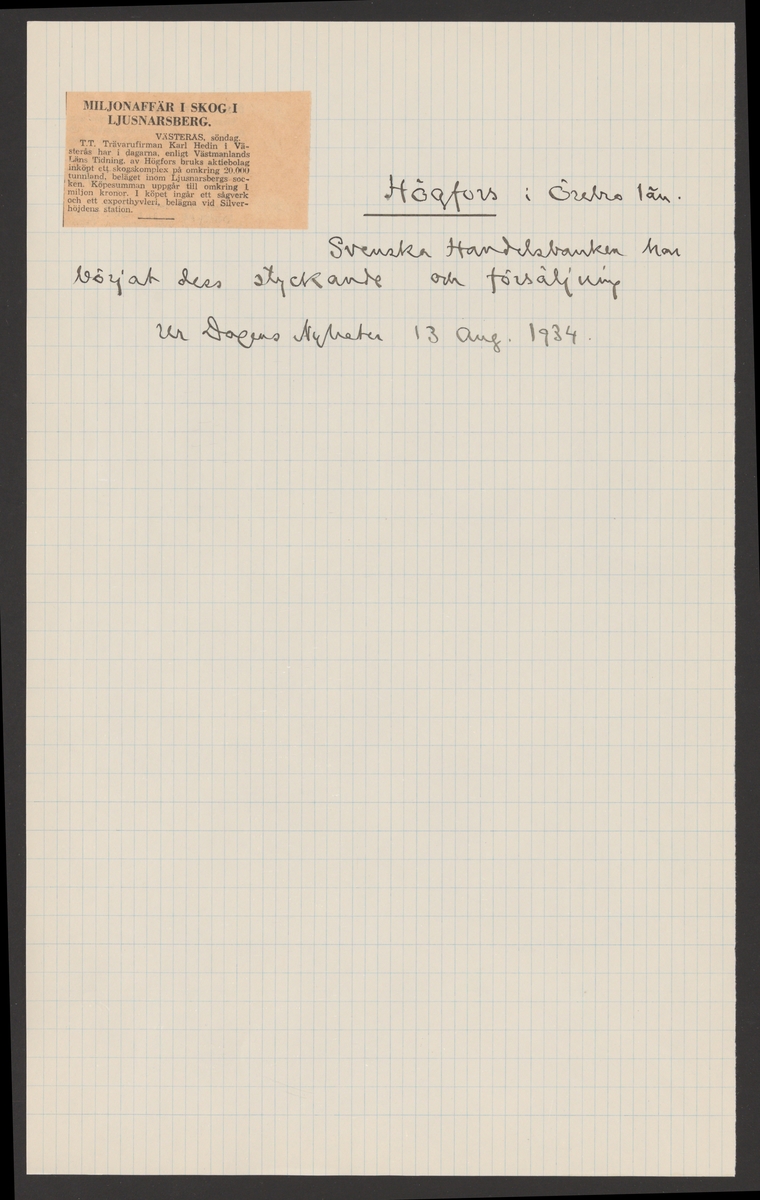 MILJONAFFÄR I SKOG I
LJUSNARSBERG.
VÄSTERÅS, söndag.
T.T. Trävarufirman Karl Hedin i Vä-
sterås har i dagarna, enligt Västmanlands
Läns Tidning, av Högfors bruks aktiebolag
inköpt ett skogskomplex på omkring 20.000
tunnland, beläget inom Ljusnarsbergs soc-
ken. Köpesumman uppgår till omkring 1
miljon kronor. I köpet ingår ett sågverk
och ett exporthyvleri, belägna vid Silver-
höjdens station.
Högfors i Örebro län.
Svenska Handelsbanken har
börjat dess styckande och försäljning
Ur Dagens Nyheter 13 Aug. 1934.